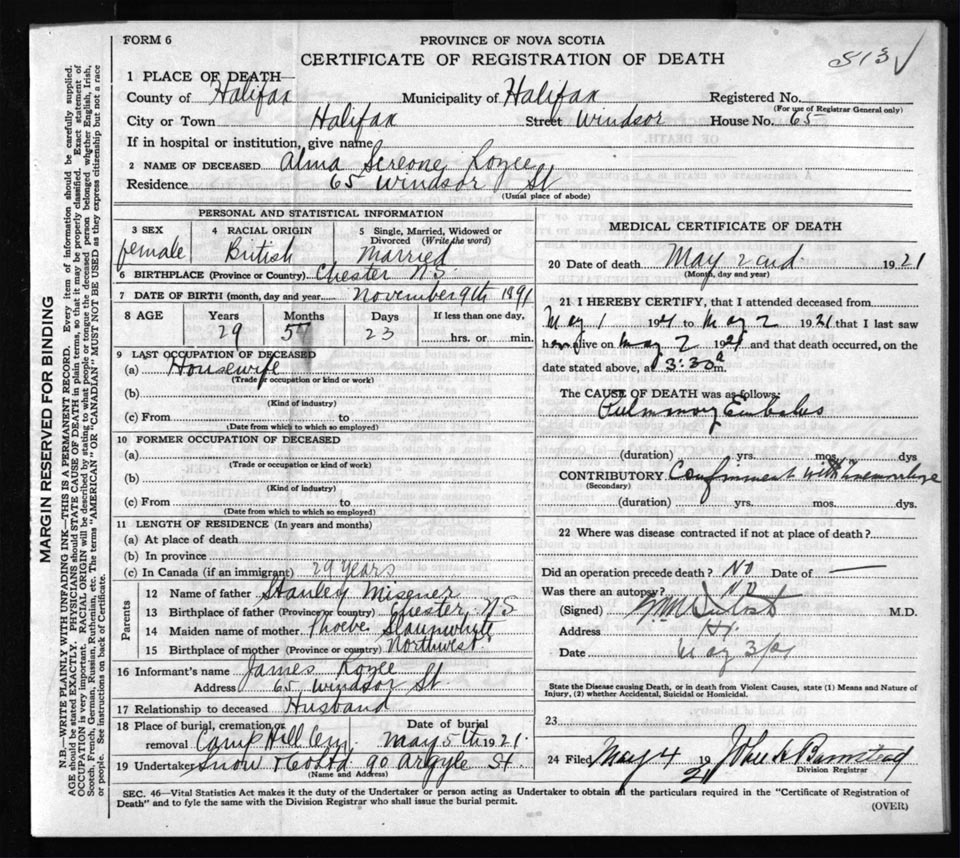 FORM 6
PROVINCE OF NOVA SCOTIA
CERTIFICATE OF REGISTRATION OF DEATH
813 ✓
1 PLACE OF DEATH—
County of Halifax Municipality of Halifax Registered No.
(For use of Registrar General only)
City or Town Halifax Street Windsor House No. 65
If in hospital or institution, give name
2 NAME OF DECEASED Alma Sereone
Residence 65 Windsor St
(Usual place of abode)
PERSONAL AND STATISTICAL INFORMATION
3 SEX 4 RACIAL ORIGIN 5 Single, Married, Widowed or Divorced (Write the word)
female British Married
6 BIRTHPLACE (Province or Country) Chester NS
7 DATE OF BIRTH (month, day and year) November 9th 1891
8 AGE Years Months Days If less than one day,
29 5 23 hrs. or min.
9 LAST OCCUPATION OF DECEASED
(a) Housewife
(Trade or occupation or kind or work)
(b)
(Kind of industry)
(c) From to
(Date from which to which so employed)
10 FORMER OCCUPATION OF DECEASED
(a)
(Trade or occupation or kind of work)
(b)
(Kind of industry)
(c) From to
(Date from which to which so employed)
11 LENGTH OF RESIDENCE (In years and months)
(a) At place of death
(b) In province
(c) In Canada (if an immigrant) 29 years
Parents
12 Name of father Stanley Misener
13 Birthplace of father (Province or country) Chester NS
14 Maiden name of mother Phoebe Slaunwhite
15 Birthplace of mother (Province or country) Northwest
16 Informant's name James
Address 65 Windsor St.
17 Relationship to deceased Husband
18 Place of burial, cremation or Date of burial
removal Camp Hill Cem May 5th 1921
19 Undertaker Snow & Co Ltd 90 Argyle St.
(Name and Address)
MEDICAL CERTIFICATE OF DEATH
20 Date of death May 2nd 1921
(Month, day and year)
21 I HEREBY CERTIFY, that I attended deceased from
May 1 1921 to May 2 1921 that I last saw
her alive on May 2 1921 and that death occurred, on the
date stated above, at 3:30 a m.
The CAUSE OF DEATH was as follows:
Pulmonary Embolus
(duration) yrs. mos. dys
CONTRIBUTORY Confinement with Haemorrhage
(Secondary)
(duration) yrs. mos. dys.
22 Where was disease contracted if not at place of death?
Did an operation precede death? No Date of —
Was there an autopsy? No
(Signed) M.D.
Address Hx
Date May 3/21
State the Disease causing Death, or in death from Violent Causes, state (1) Means and Nature of
Injury, (2) whether Accidental, Suicidal or Homicidal.
23
24 Filed May 4 1921
Division Registrar
SEC. 46—Vital Statistics Act makes it the duty of the Undertaker or person acting as Undertaker to obtain all the particulars required in the "Certificate of Registration of
Death" and to fyle the same with the Division Registrar who shall issue the burial permit.
(OVER)
MARGIN RESERVED FOR BINDING
N.B.—WRITE PLAINLY WITH UNFADING INK—THIS IS A PERMANENT RECORD. Every item of information should be carefully supplied.
AGE should be stated EXACTLY. PHYSICIANS should STATE CAUSE OF DEATH in plain terms, so that it may be properly classified. Exact statement of
OCCUPATION is very important. RACIAL ORIGIN will be described by stating to what people or tongue the deceased person belonged whether English, Irish,
Scotch, French, German, Russian, Ruthenian, etc. The terms "AMERICAN" OR "CANADIAN" MUST NOT BE USED as they express citizenship but not a race
or people. See instructions on back of Certificate.